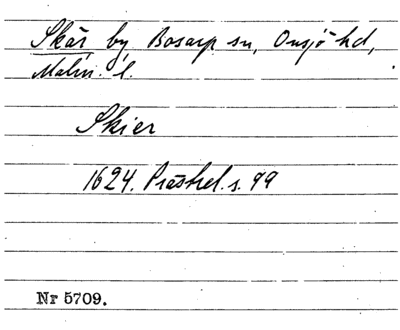 Skår by, Bosarp sn, Onsjö hd,
Malm. l.
Skier
1624. Prästrel. s. 99
Nr 5709.